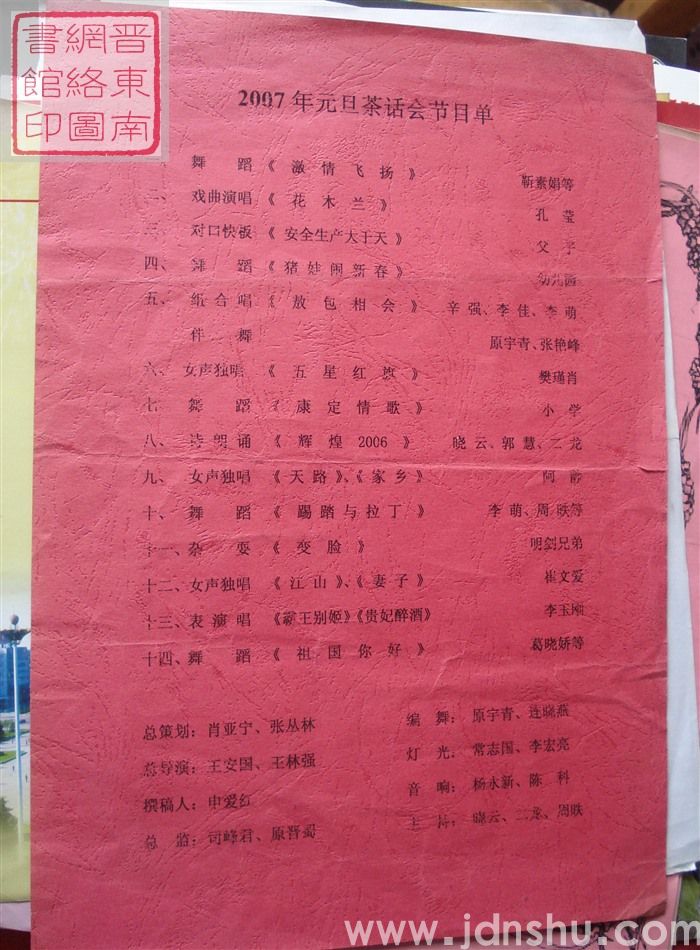 晋东南
网络图
书馆印
2007年元旦茶话会节目单
舞 蹈 《 激 情 飞 扬 》 靳素娟等
二、 戏曲演唱 《 花 木 兰 》 孔 莹
三、 对口快板 《 安全生产大于天 》 父 子
四、 舞 蹈 《 猪 娃 闹 新 春 》 幼儿园
五、 组 合 唱 《 敖 包 相 会 》 辛 强、李 佳、李 萌
伴 舞 原宇青、张艳峰
六、 女声独唱 《 五 星 红 旗 》 樊瑾肖
七、 舞 蹈 《 康 定 情 歌 》 小 学
八、 诗 朗 诵 《 辉 煌 2006 》 晓 云、郭 慧、二 龙
九、 女声独唱 《 天 路 》、《 家 乡 》 阿
十、 舞 蹈 《 踢踏与拉丁 》 李 萌、周 昳等
十一、杂 耍 《 变 脸 》 明剑兄弟
十二、女声独唱 《 江 山 》、《 妻 子 》 崔文爱
十三、表 演 唱 《霸王别姬》《贵妃醉酒》 李玉刚
十四、舞 蹈 《 祖 国 你 好 》 葛晓娇等
总策划：肖亚宁、张丛林
总导演：王安国、王林强
撰稿人：申爱红
总 监：司峰君、原晋
编 舞：原宇青、连晓燕
灯 光：常志国、李宏亮
音 响：杨永新、陈 科
主 持：晓云、二龙、周昳
www.jdnshu.com